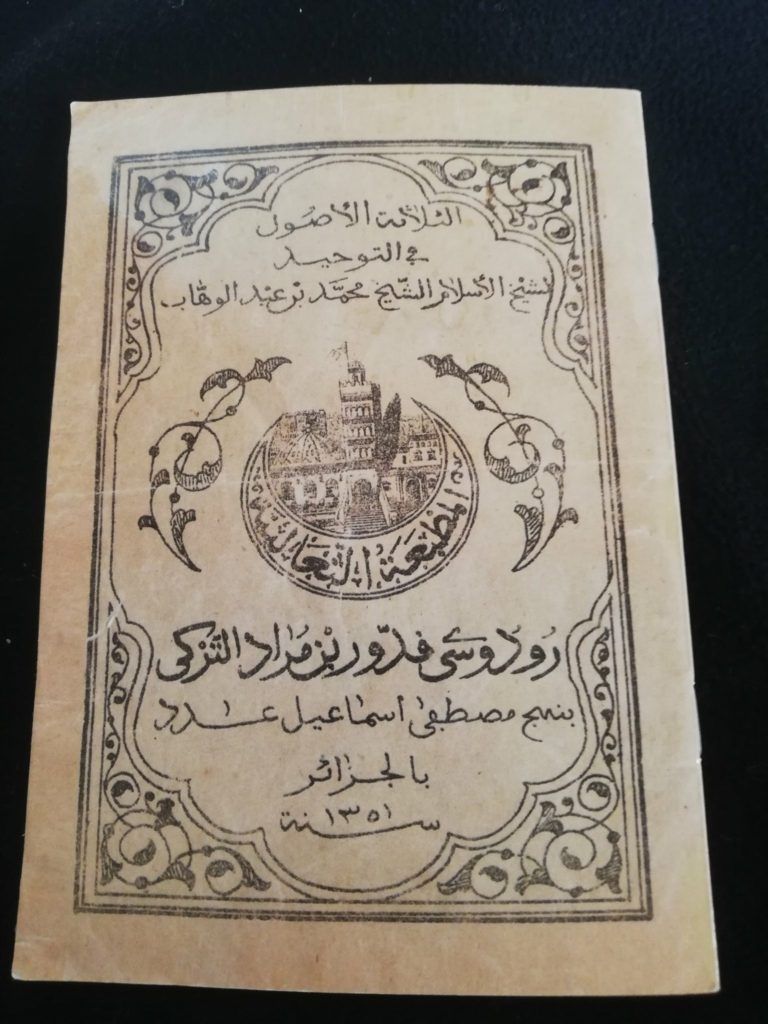 الثلاثة الأصول
في التوحيد
لشيخ الأسلام الشيخ محمد بن عبد الوهاب
المطبعة الثعالبية
رُودُوسي قدّور بن مُرَاد التركي
بنهج مصطفى اسماعيل عدد
بالجزائر
سنة ١٣٥١